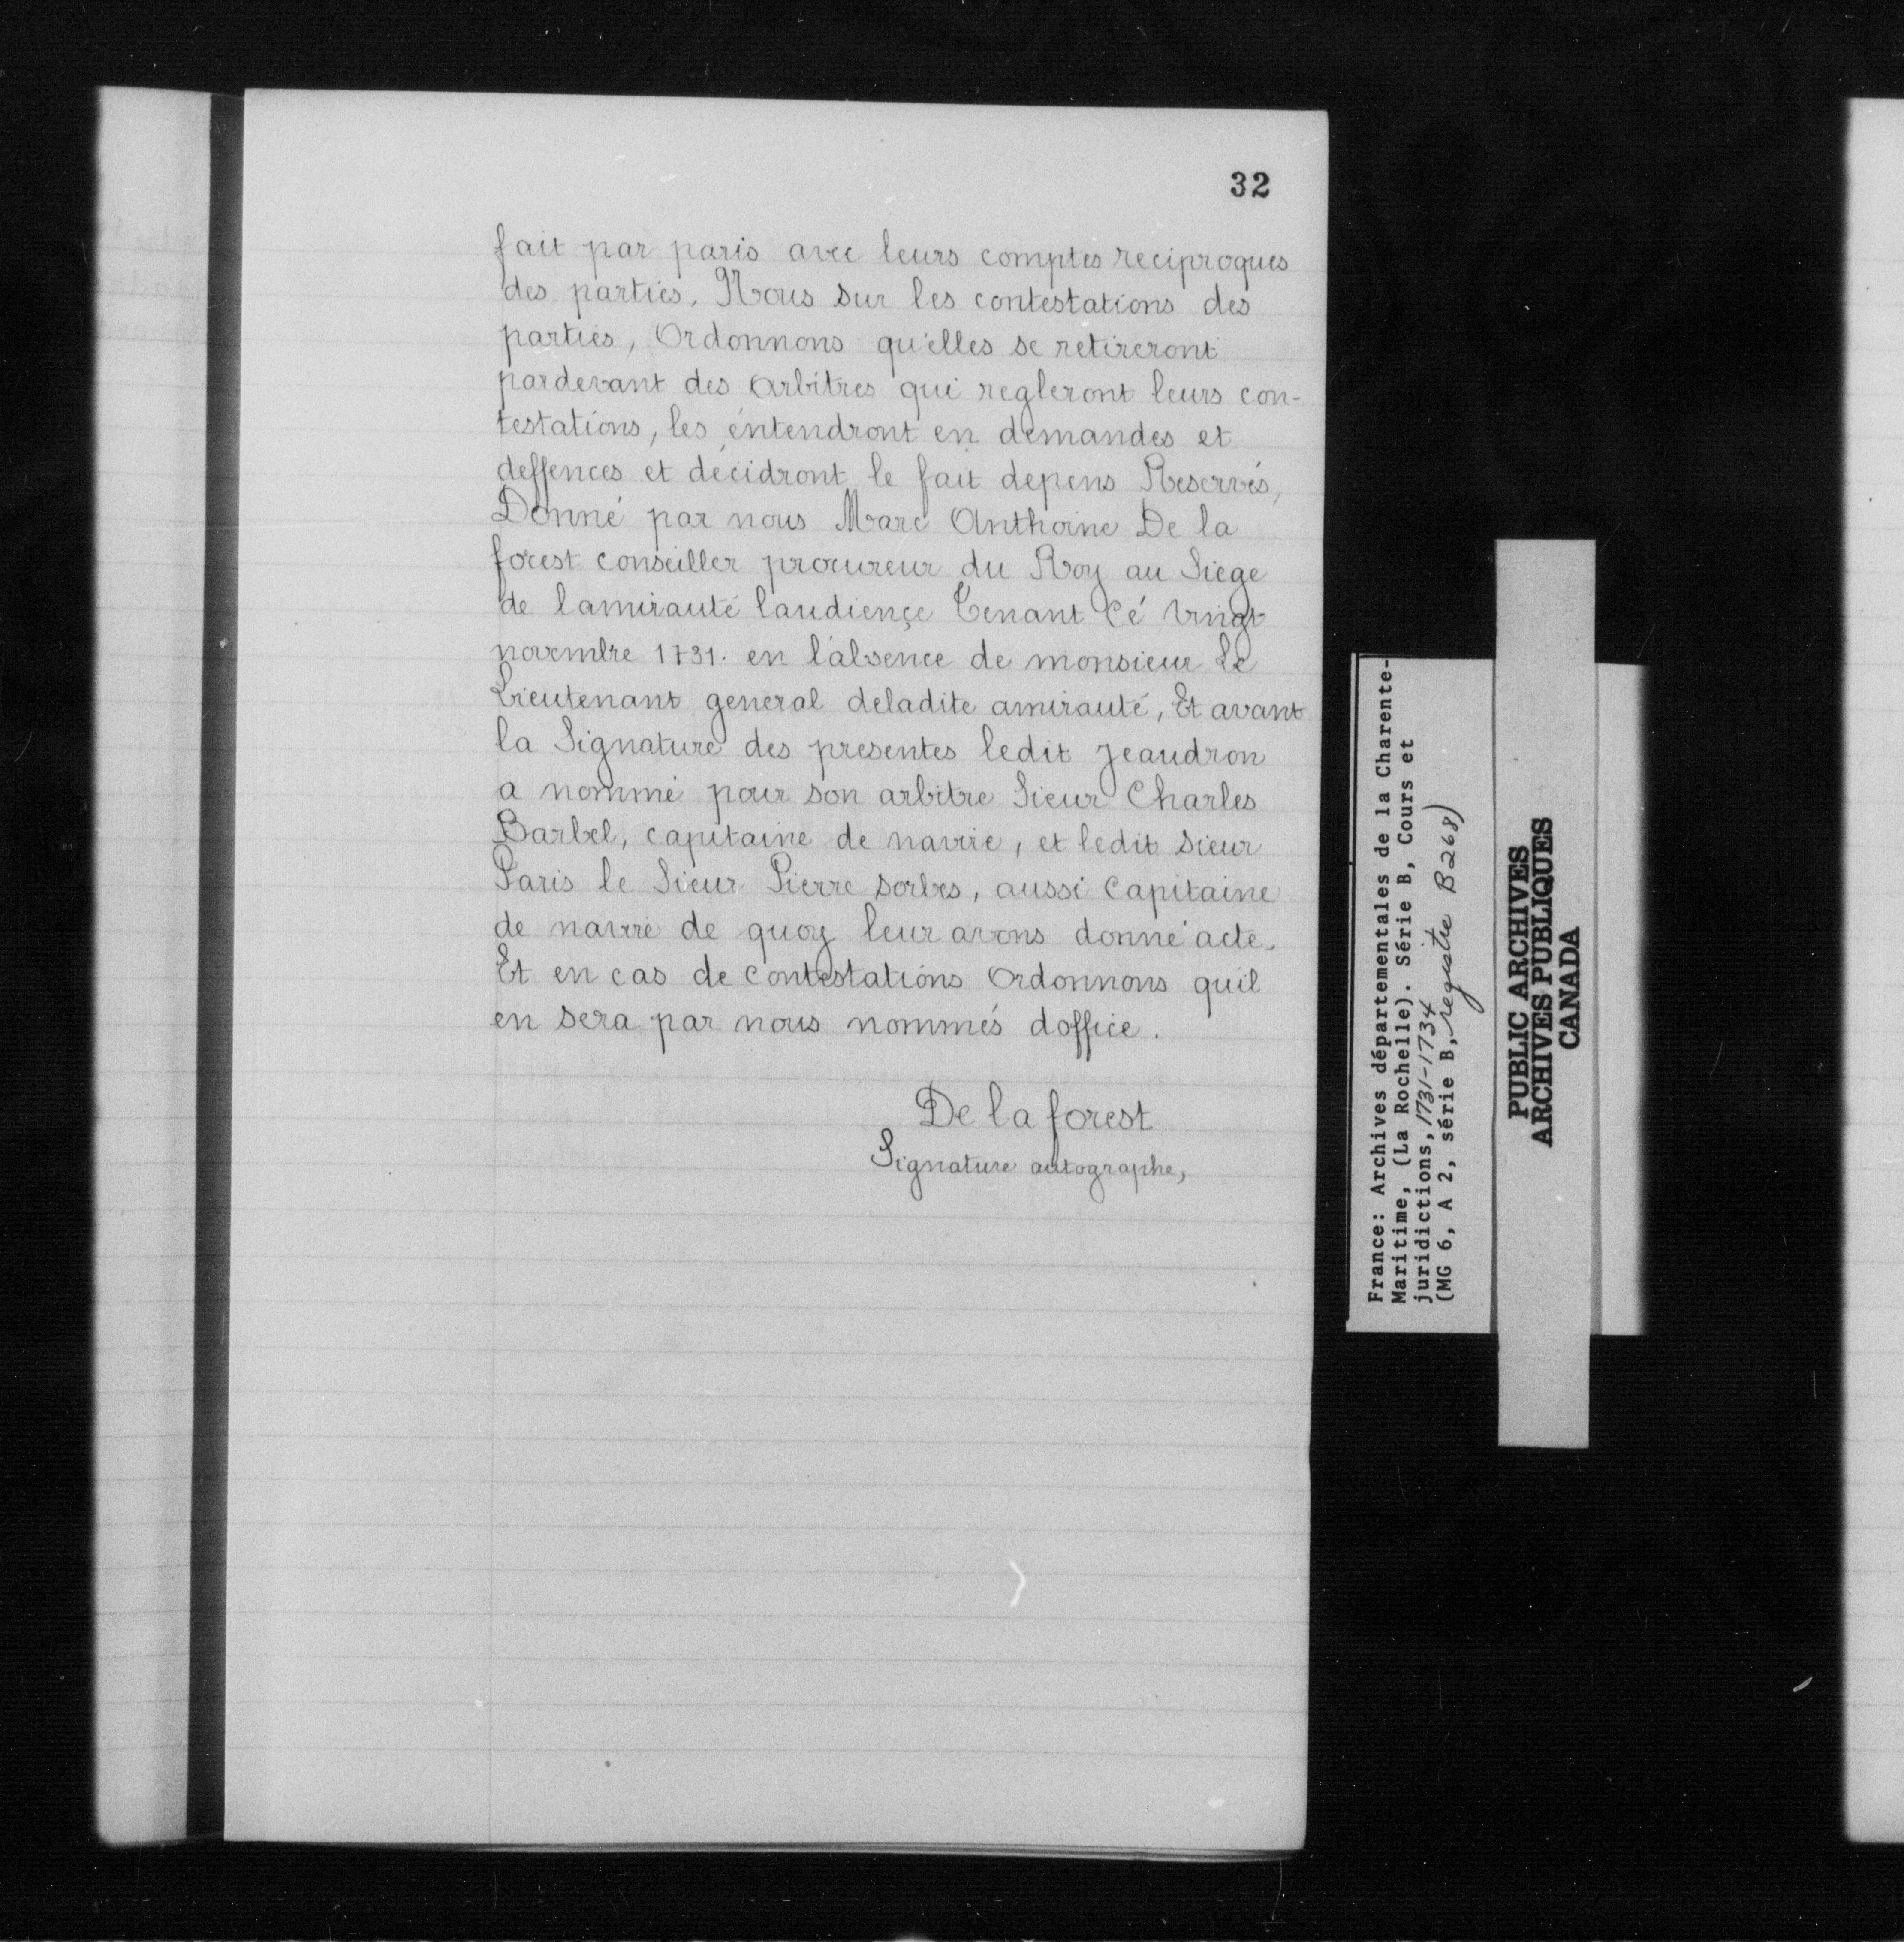 32
fait par paris avec leurs comptes reciproques
des parties. Nous sur les contestations des
parties, Ordonnons qu'elles se retireront
pardevant des Arbitres qui regleront leurs con-
testations, les entendront en demandes et
deffences et décidront le fait depens Reservés,
Donné par nous Marc Anthoine De la
forest conseiller procureur du Roy au Siege
de lamirauté laudiençe Tenant Cé vingt
novembre 1731. en l'absence de monsieur Le
Lieutenant general deladite amirauté, Et avant
la Signature des presentes ledit Jeaudron
a nommé pour son arbitre Sieur Charles
Barbel, capitaine de navire, et ledit sieur
Paris le Sieur Pierre sorbes, aussi Capitaine
de navire de quoy leur avons donné acte.
Et en cas de Contestations Ordonnons quil
en sera par nous nommés doffice.
De la forest
Signature autographe,
France: Archives départementales de la Charente-
Maritime, (La Rochelle). Série B, Cours et
juridictions, 1731-1734
(MG 6, A 2, série B, registre B268)
PUBLIC ARCHIVES
ARCHIVES PUBLIQUES
CANADA